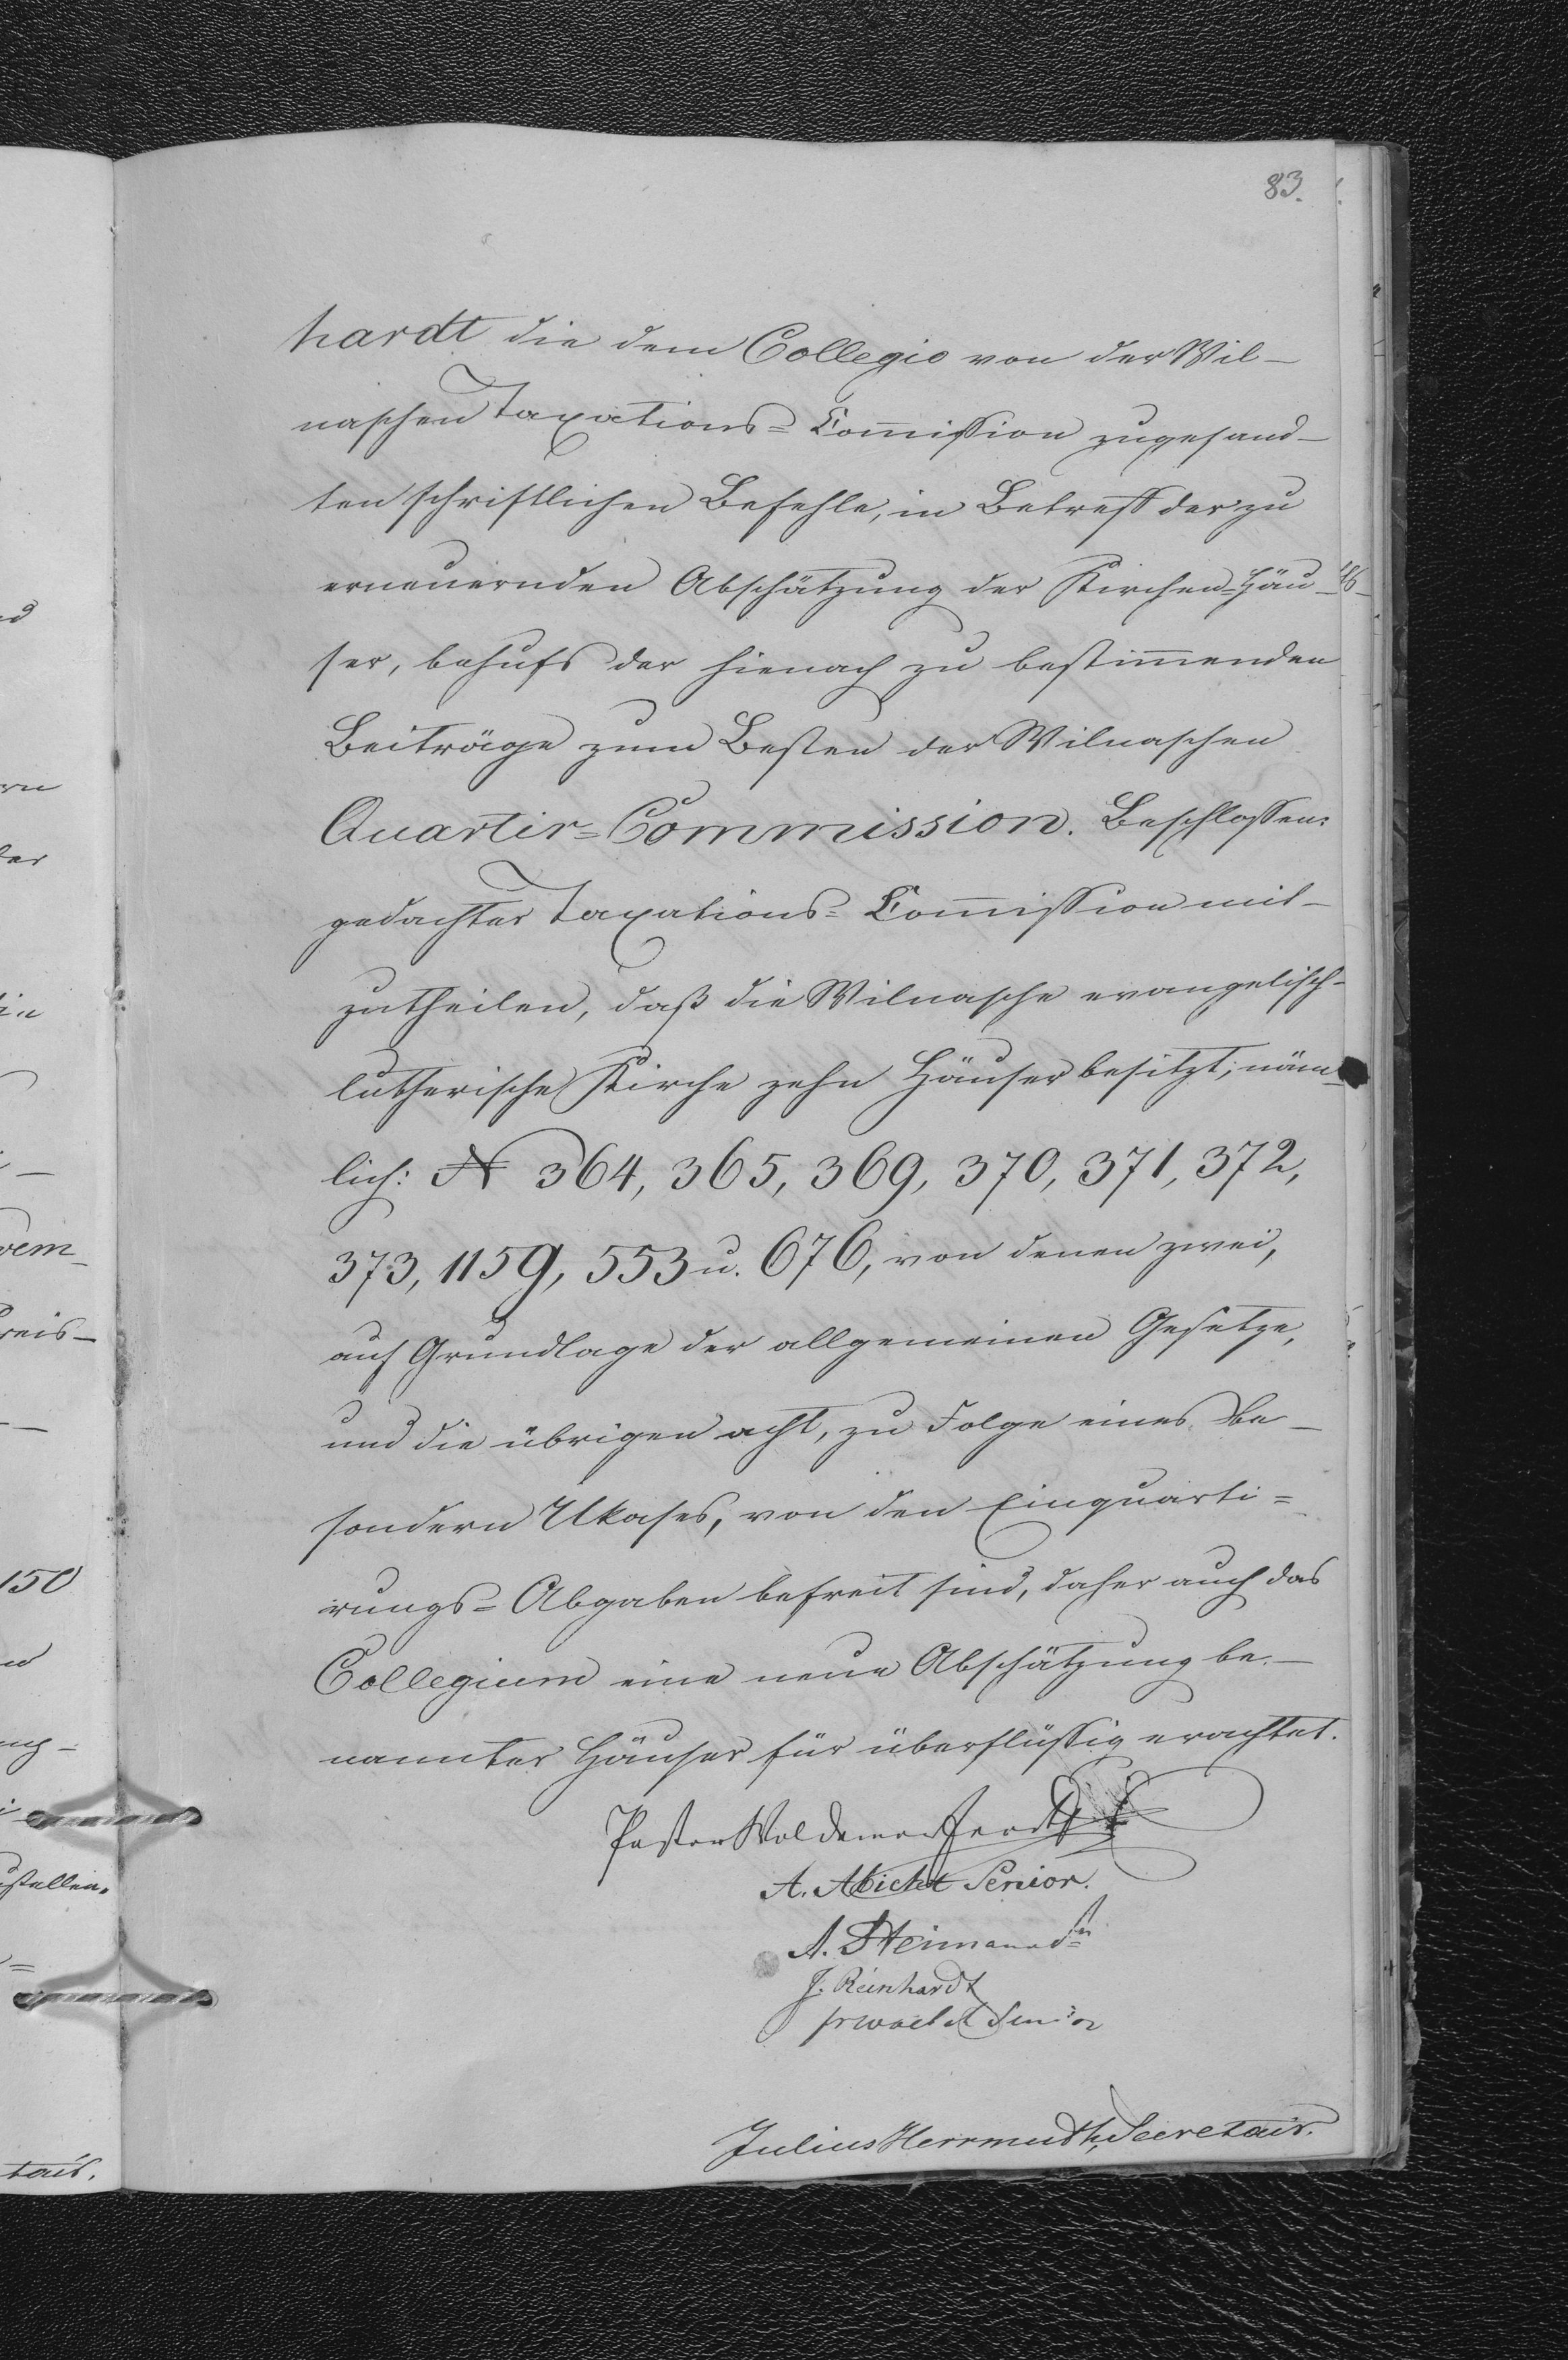 83.
hardt die dem Collegio von der Wil-
naschen Taxations=Commission zugesand-
ten schriftlichen Befehle, in Betreff der zu
erneuernden Abschätzung der Kirchen=Häu-
ser, behufs der hienach zu bestimmenden
Beiträge zum Besten der Wilnaschen
Quartir=Commission. Beschlossen:
gedachter Taxations=Commission mit-
zutheilen, daß die Wilnasche evangelisch-
lutherische Kirche zehn Häuser besitzt; näm-
lich: N 364, 365, 369, 370, 371, 372,
373, 1159, 553 u. 676, von denen zwei,
auf Grundlage der allgemeinen Gesetze,
und die übrigen acht, zu Folge eines be-
sondern Ukases, von den Einquarti=
rungs=Abgaben befreit sind, daher auch das
Collegium eine neue Abschätzung be-
nannter Häuser für überflüssig erachtet.
Pastor Woldemar
A. Abicht Senior.
A. Heimann
J. Reinhardt
Senior
Julius Herrmuth, Secretair.